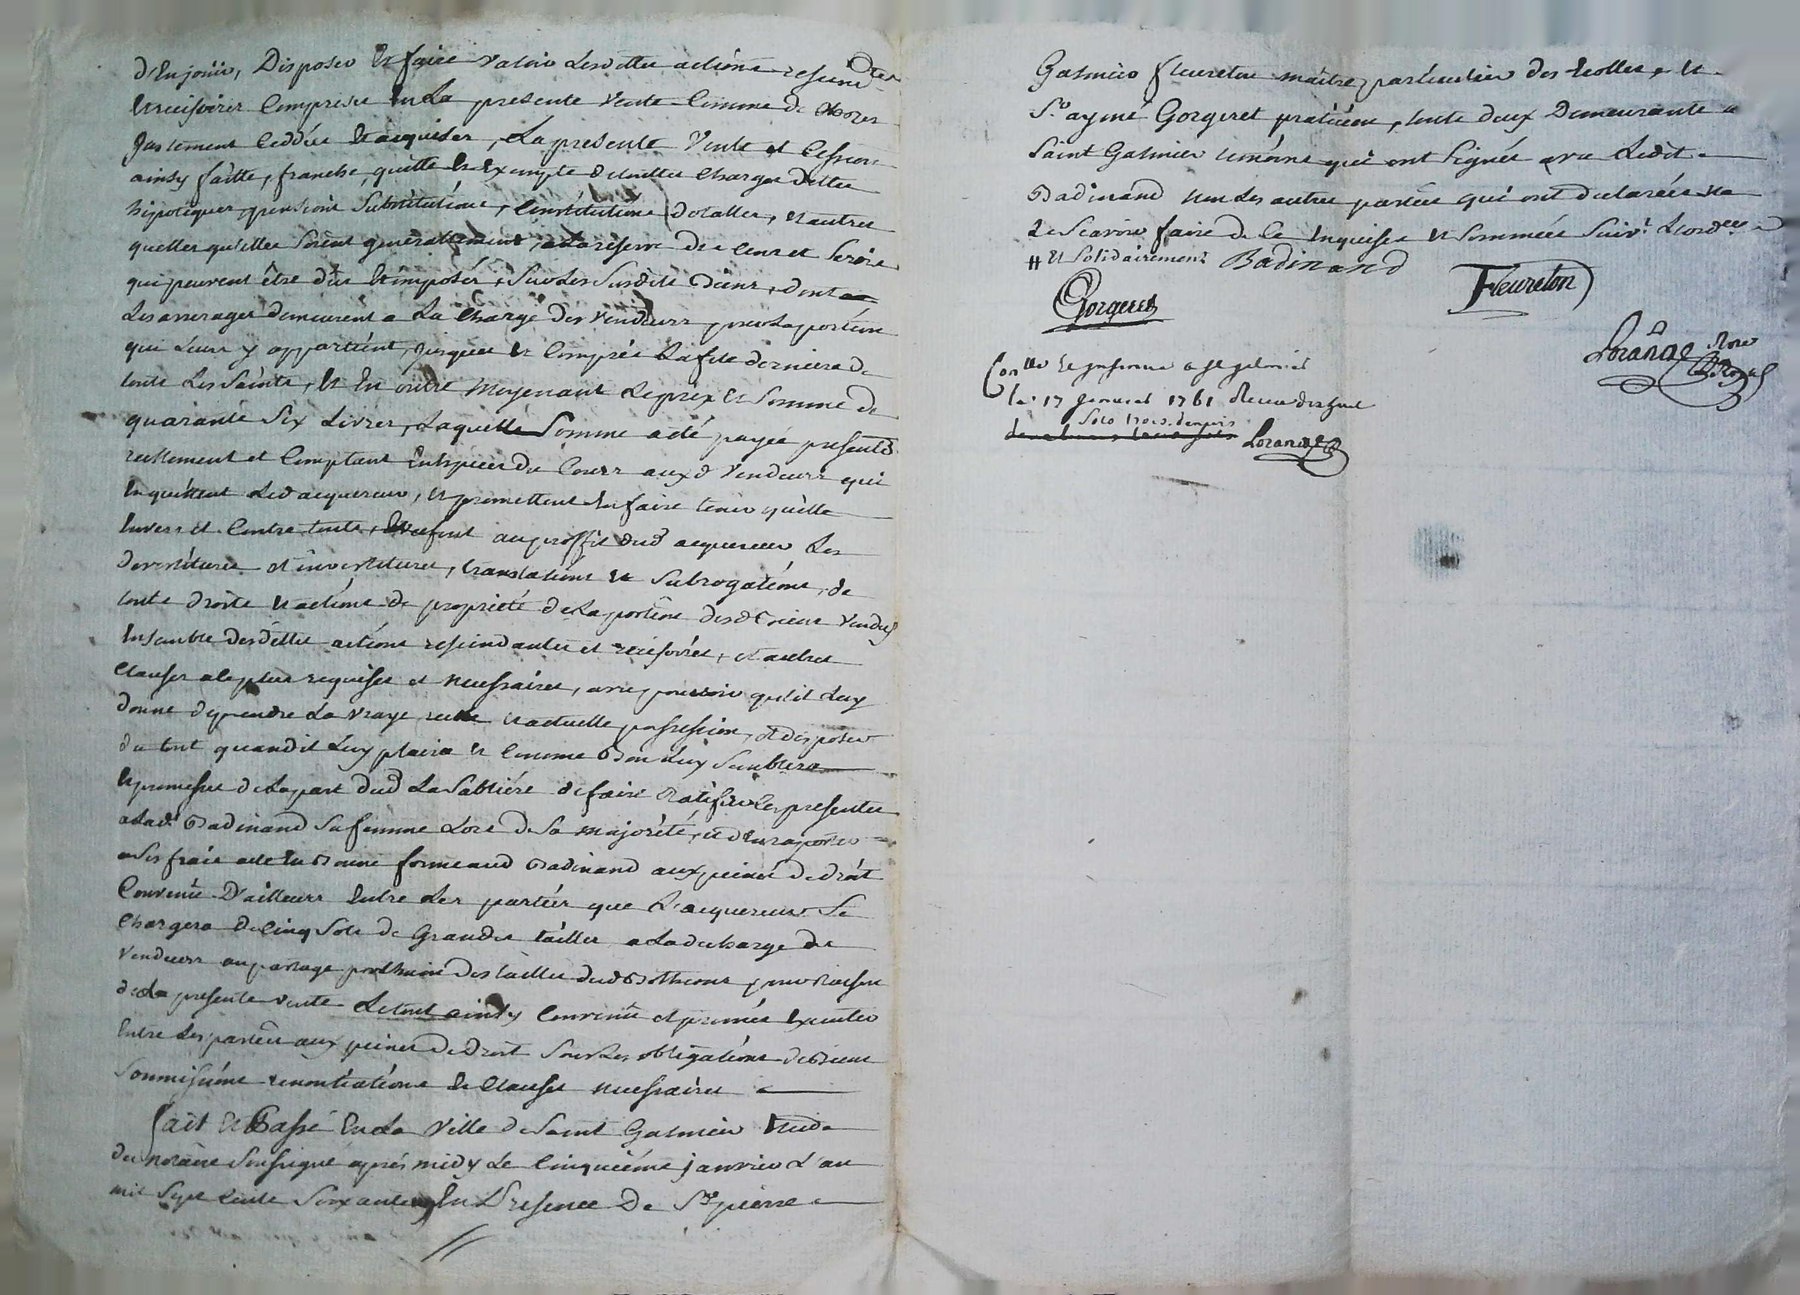 d'En jouir, Disposer Et faire valoir Lesdittes actions rescindantes
Et rescisoires Comprises En La presente Vente Comme de choses
Justement Ceddées Et acquises, La presente Vente et Cession
ainsy faitte, franche, quitte Et Exempte de touttes Charges dettes
hipoteques, pensions Substitutions, Constitutions dotalles, Et autres
quelles qu'elles soient generallement, a La reserve des Cens et servis
qui peuvent être dûs Et imposés, Sur Les Susdits Biens, dont
Les arrerages demeurent a La Charge des Vendeurs pour La portion
qui Leur y appartient, jusques Et Compris La fete derniere de
touts Les Saints, Et En outre Moyenant Le prix Et Somme de
quarante Six Livres, Laquelle Somme a été payée presentement
reellement et Comptant En Especes du Cours auxd Vendeurs qui
En quittent Led acquereur, Et promettent En faire tenir quitte
Envers Et Contre touts, Et se font au proffit dud acquereur Les
devetitures et investitures, translations Et Subrogations, de
touts droits Et actions de propriété de La portion desd Biens Vendus
Ensemble desdittes actions rescindantes et rescisoires, et autres
Clauses a ce plus requises et necessaires, avec pouvoir qu'il Luy
donne de prendre La vraye reelle Et actuelle possession, et disposer
du tout quand il Luy plaira Et Comme Bon Luy Semblera
Et promesses de La part dud La Sabliére de faire Ratifier Les presentes
a Lad. Badinand Sa femme Lors de Sa majorité, et d'En raporter
a Ses frais acte En Bonne forme aud Badinand aux peines de droit
Convenû D'ailleurs Entre Les parties que L'acquereur Se
Chargera de Cinq Sols de Grandes tailles a La decharge des
Vendeurs au partage prochain des tailles dud Bothéon pour Raison
de La presente vente Le tout ainsy Convenû et promis Executer
Entre Les parties aux peines de Droit Sous Les obligations de Biens
Soumissions renontiations Et Clauses necessaires
fait Et Passé En La Ville de Saint Galmier Etude
du Notaire Soussigné aprés midy Le Cinquiéme janvier L'an
mil Sept Cents Soixante En Presence De Sr pierre
Galmier fleureton maitre particulier des Ecolles, Et
Sr aymé Gorgeret praticien, touts deux Demeurants a
Saint Galmier temoins qui ont Signés avec Ledit
Badinand non Les autres parties qui ont declarées ne
Le Scavoir faire de Ce Enquises Et Sommées Suivt L'ordce
# Et Solidairement Badinand
Fleureton
Gorgeret
Lorange Nore Royal
Conlle Et insinué a st galmier
le 17 janvier 1761 Receu dix huit
Sols trois deniers
Lorange